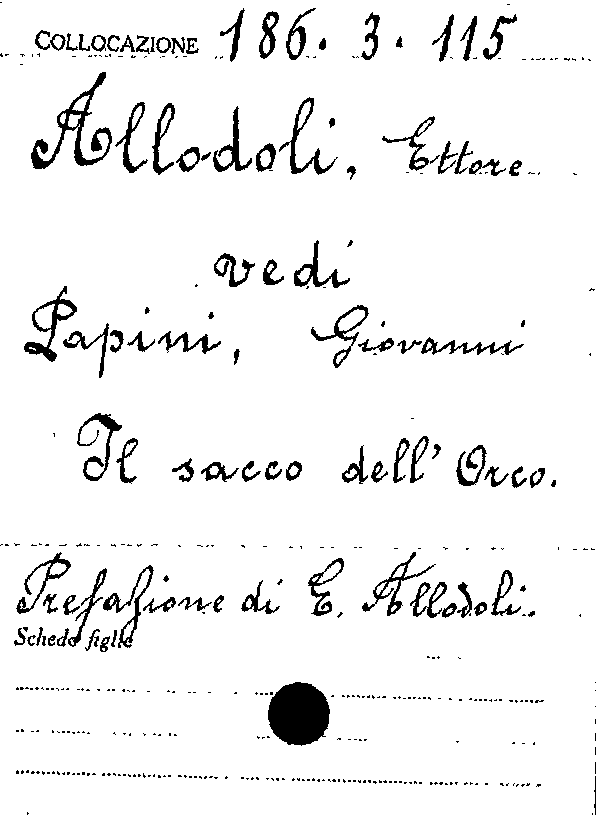 COLLOCAZIONE 186. 3. 115
Allodoli, Ettore
vedi
Papini, Giovanni
Il sacco dell'Orco.
Prefazione di E. Allodoli.
Schede figlie